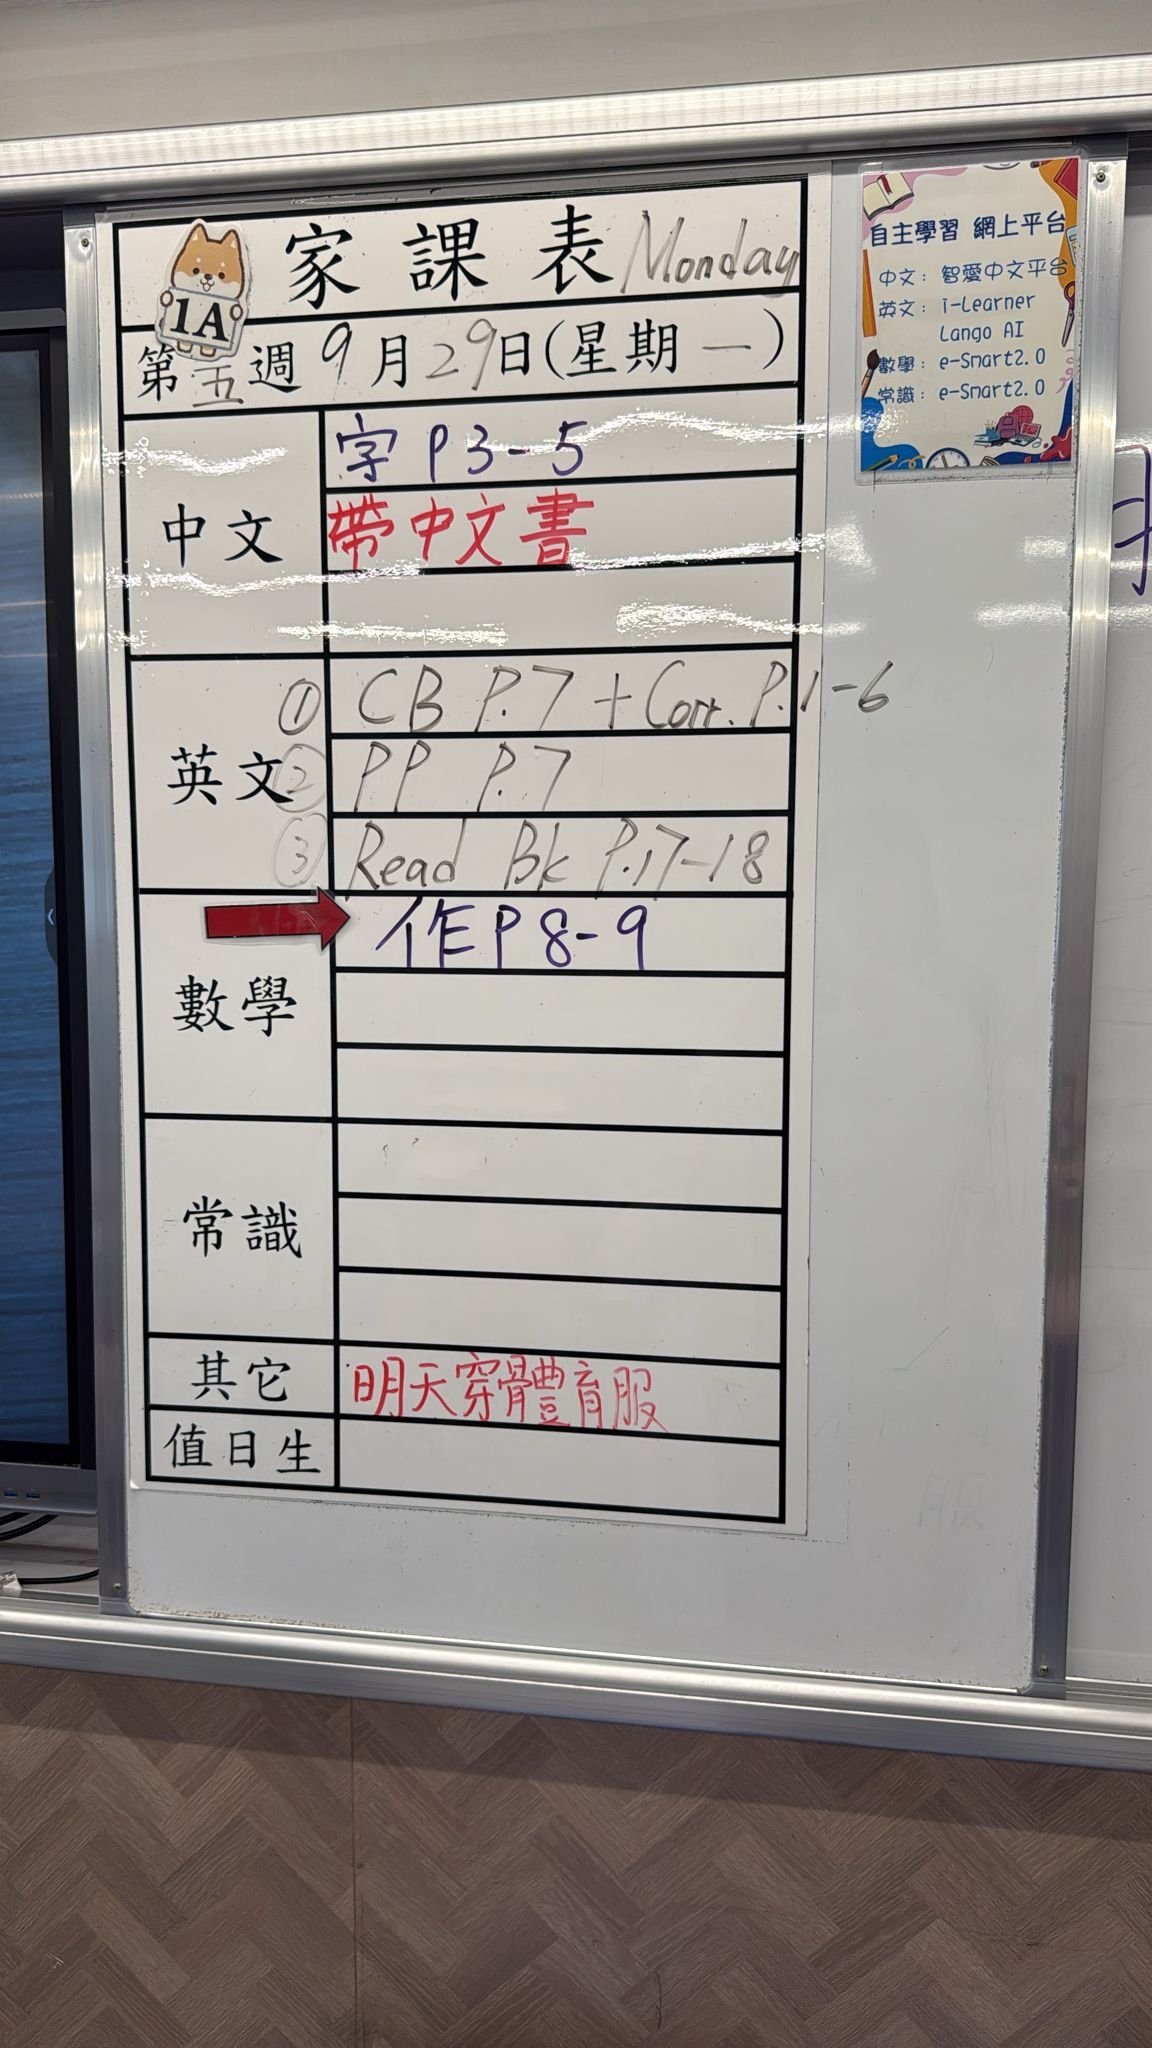 家課表 Monday
1A
第五週 9月29日(星期一)
中文
字 P 3-5
帶中文書
英文
① CB P.7 + Corr. P.1-6
② PP P.7
③ Read Bk P.17-18
數學
作 P 8-9
常識
其它
明天穿體育服
值日生
自主學習 網上平台
中文: 智愛中文平台
英文: i-Learner
Lango AI
數學: e-Smart2.0
常識: e-Smart2.0